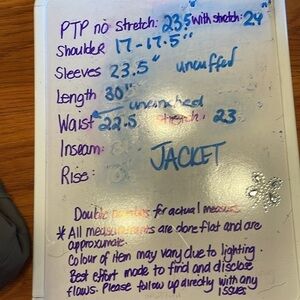 PTP no stretch: 23.5" with stretch: 24"
Shoulder 17-17.5"
Sleeves 23.5" uncuffed
Length 30"
Waist 22.5 uncinched stretch: 23
Inseam:
Rise: JACKET
Double for actual measure
* All measurements are done flat and are
approximate.
Colour of item may vary due to lighting.
Best effort made to find and disclose
flaws. Please follow up directly with any
issues